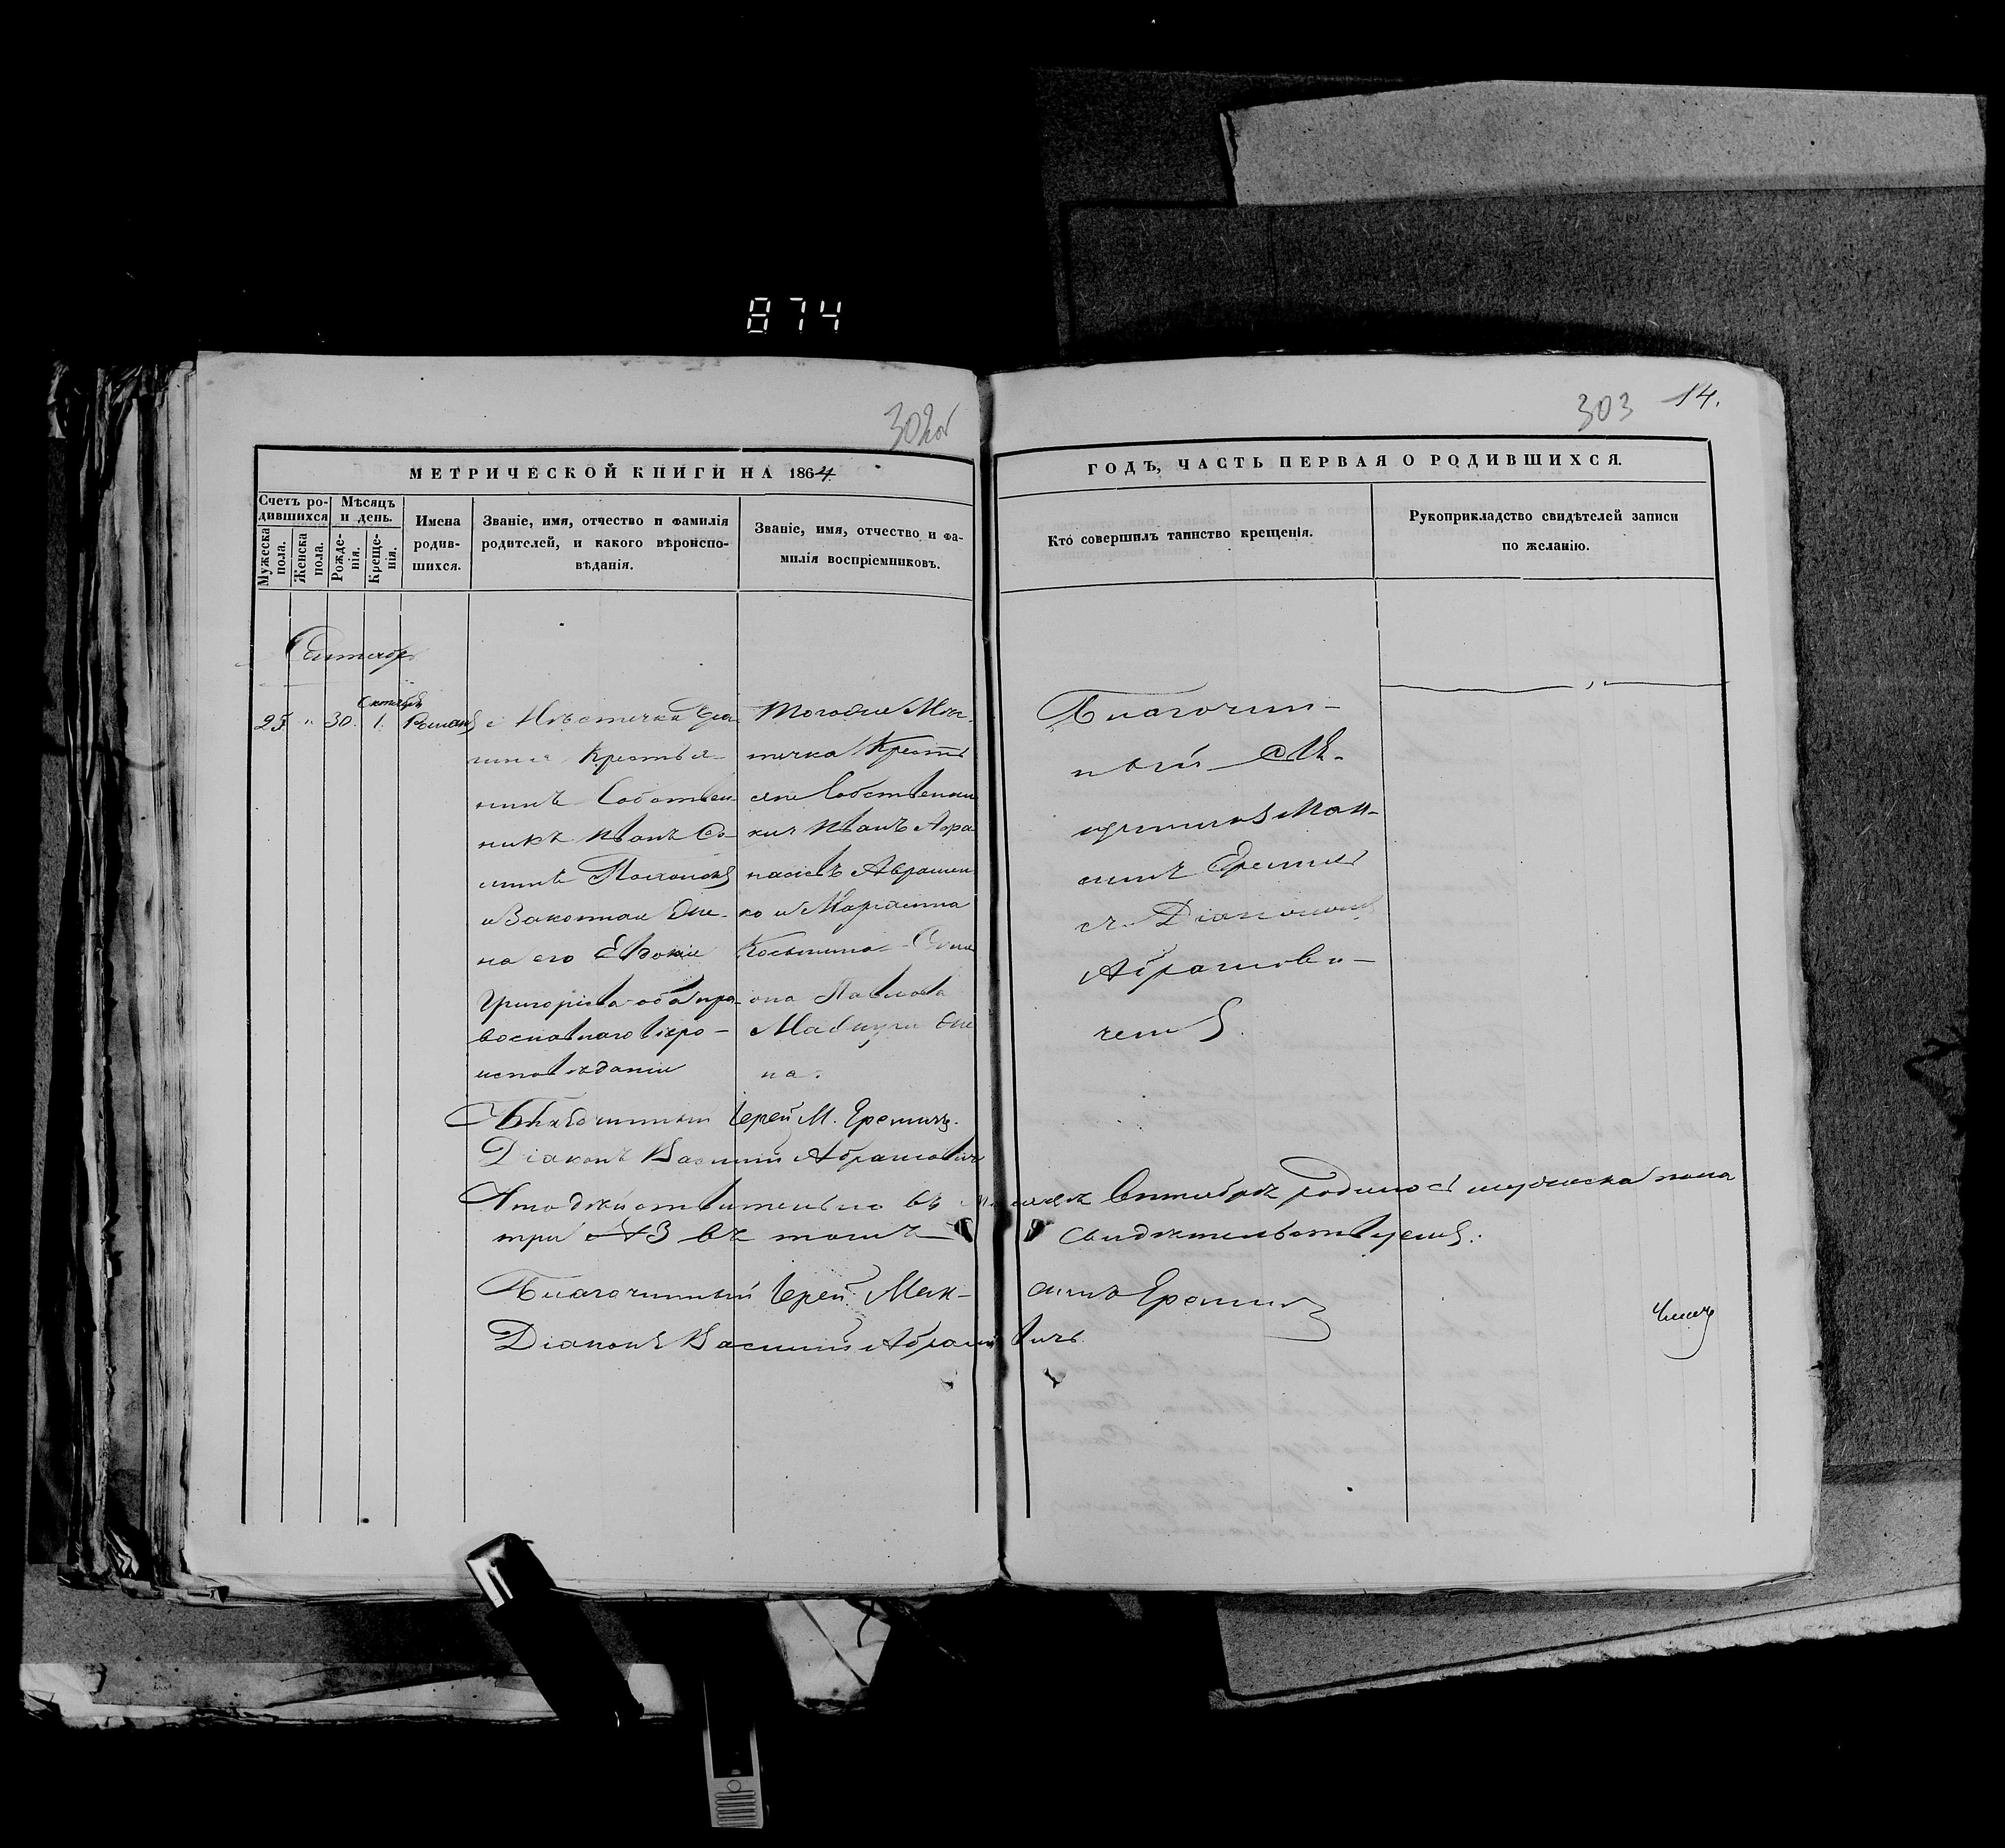 874
302об
303 14.
МЕТРИЧЕСКОЙ КНИГИ НА 1864
ГОДЪ, ЧАСТЬ ПЕРВАЯ О РОДИВШИХСЯ.
Счетъ родившихся
Мужеска пола.
Женска пола.
Мѣсяцъ и день.
Рожденія.
Крещенія.
Имена родившихся.
Званіе, имя, отчество и фамилія
родителей, и какого вѣроиспо-
вѣданія.
Званіе, имя, отчество и фа-
милія воспріемниковъ.
Кто совершилъ таинство крещенія.
Рукоприкладство свидѣтелей записи
по желанію.
Сентябр
Октября
25 " 30. 1. Романъ
Мѣстечка
Крестья-
нинъ Собствен-
никъ Иванъ Со-
и Законная Же-
на его Евдокія
Григоріева оба пра-
вославнаго вѣро-
исповѣданія
Тогоже Мѣс-
течка Крестъ
яне Собственни
ки Иванъ Афа
насіевъ Аврамен
ко и Маріанна
Косьмина
она Павлова
Же
на.
Благочин-
ный Свя-
щенникъ Мак-
симъ Ереми
съ Діакономъ
Абрамови-
чемъ.
Благочинный Іерей М. Еремичъ.
Діаконъ Василий Абрамовичъ
Что дѣйствительно въ мѣсяцѣ Сентябрѣ родилось мужеска пола
три №3 въ томъ свидѣтельствуемъ.
Благочинный Іерей Максимъ Еремичъ
Діаконъ Василий Абрамовичъ.